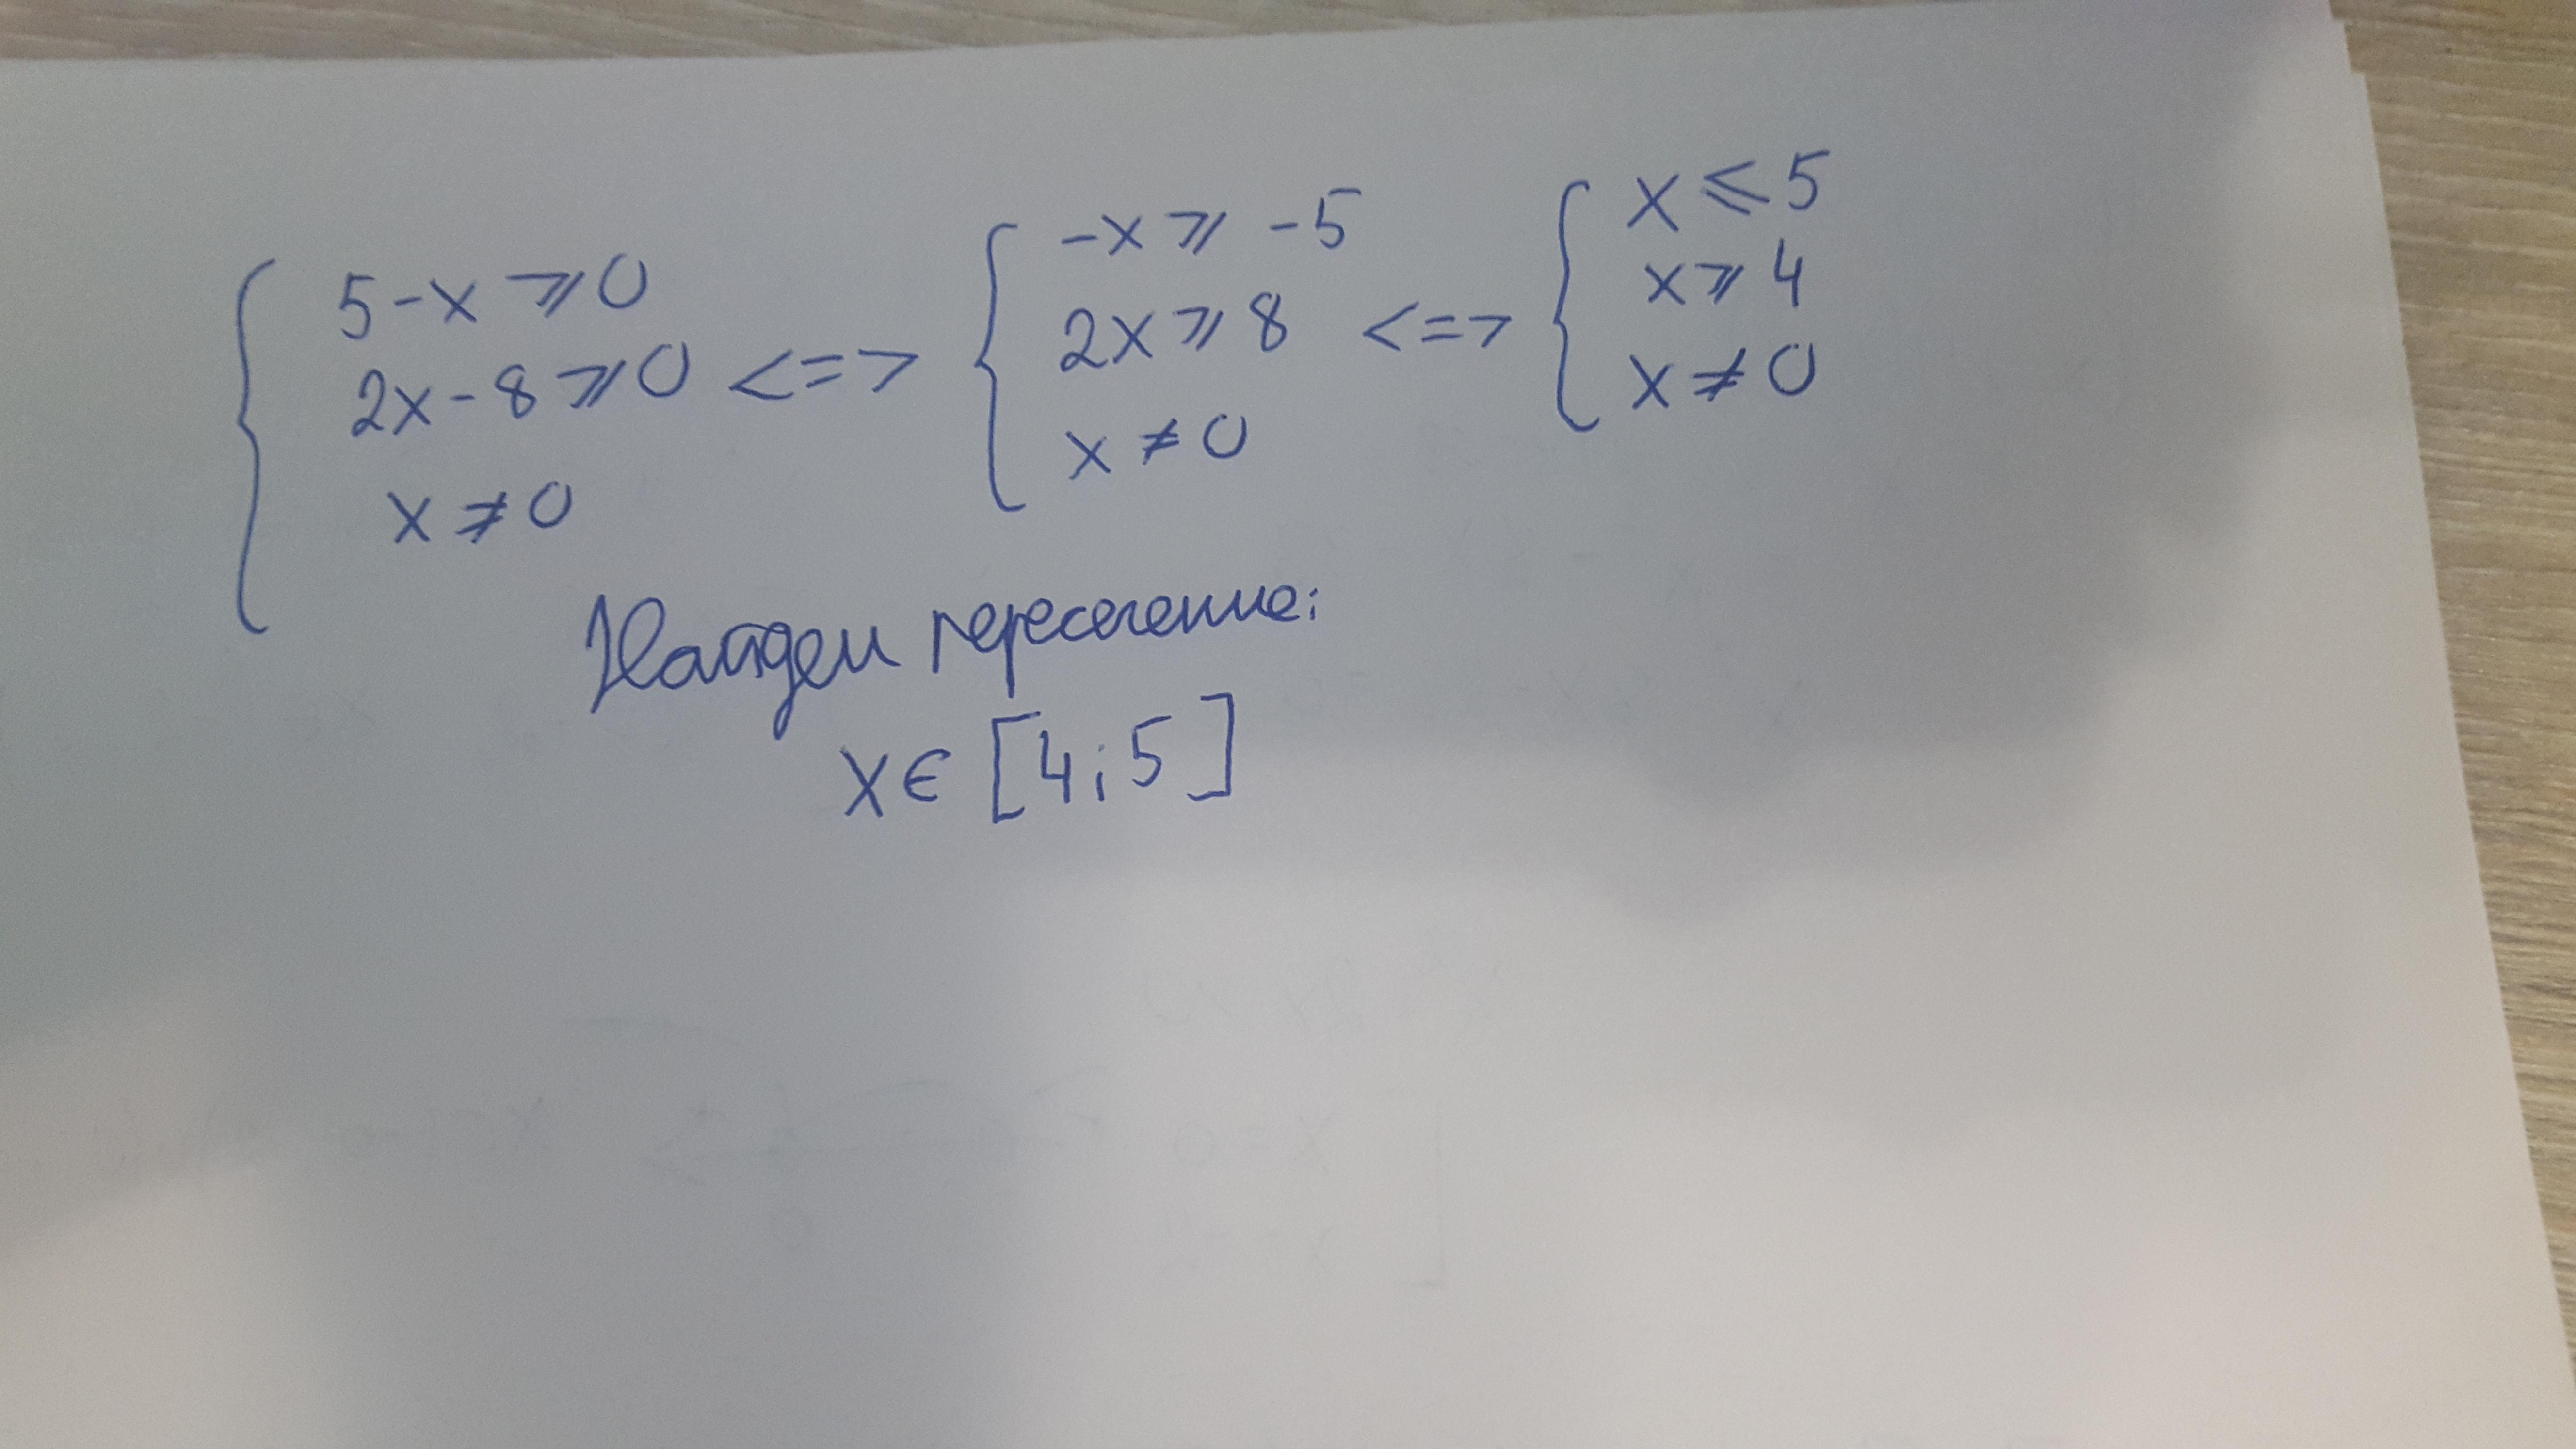 5-x ⩾ 0
2x-8 ⩾ 0 <=>
x ≠ 0
-x ⩾ -5
2x ⩾ 8 <=>
x ≠ 0
x ⩽ 5
x ⩾ 4
x ≠ 0
Найдем пересечение:
x∈ [4;5]